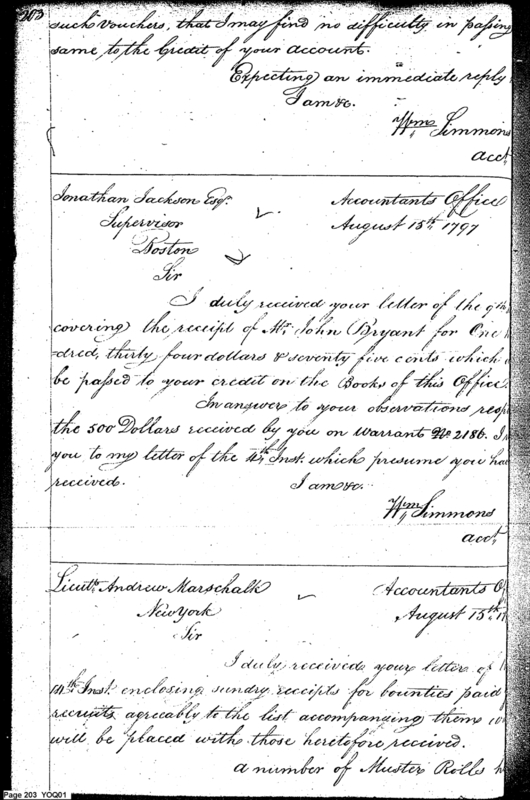 203
such Vouchers, that I may find no difficulty in passing
same to the Credit of your account.
Expecting an immediate reply
I am &c.
Wm Simmons
acct
Jonathan Jackson Esqr.
Accountants Office
Supervisor
August 15th, 1797
Boston
Sir
I duly received your letter of the 9th
covering the receipt of Mr. John Bryant for One
dred, thirty four dollars & seventy five cents which
be passed to your credit on the Books of this Office.
In answer to your observations resp
the 500 Dollars received by you on Warrant No 2186. I
you to my letter of the 4th Inst. which presume you ha
received.
I am &c.
Wm Simmons
acct
Lieutt. Andrew Marschalk
Accountants Of
New York
August 15th 1
Sir
I duly received your letter of
14th Inst. enclosing sundry receipts for bounties paid
recruits agreeably to the list accompanying them
will be placed with those heretofore received.
a number of Muster Rolls h
Page 203 YOQ01